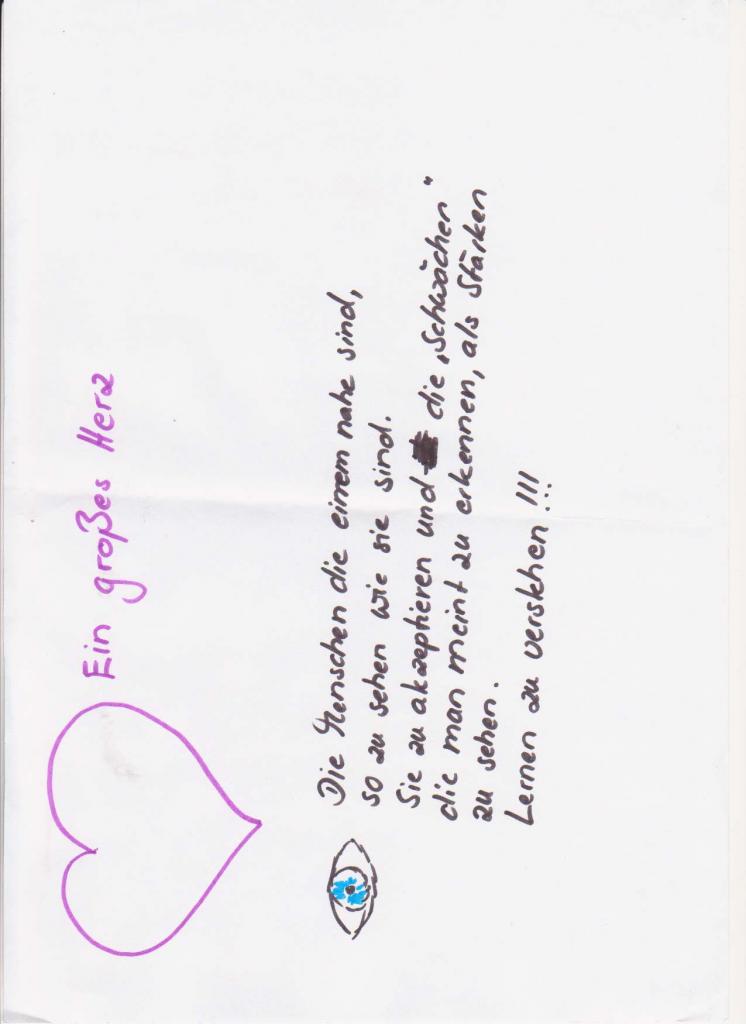 Ein großes Herz
Die Menschen die einem nahe sind,
so zu sehen wie sie sind.
Sie zu akzeptieren und die „Schwächen“
die man meint zu erkennen, als Stärken
zu sehen.
Lernen zu verstehen!!!